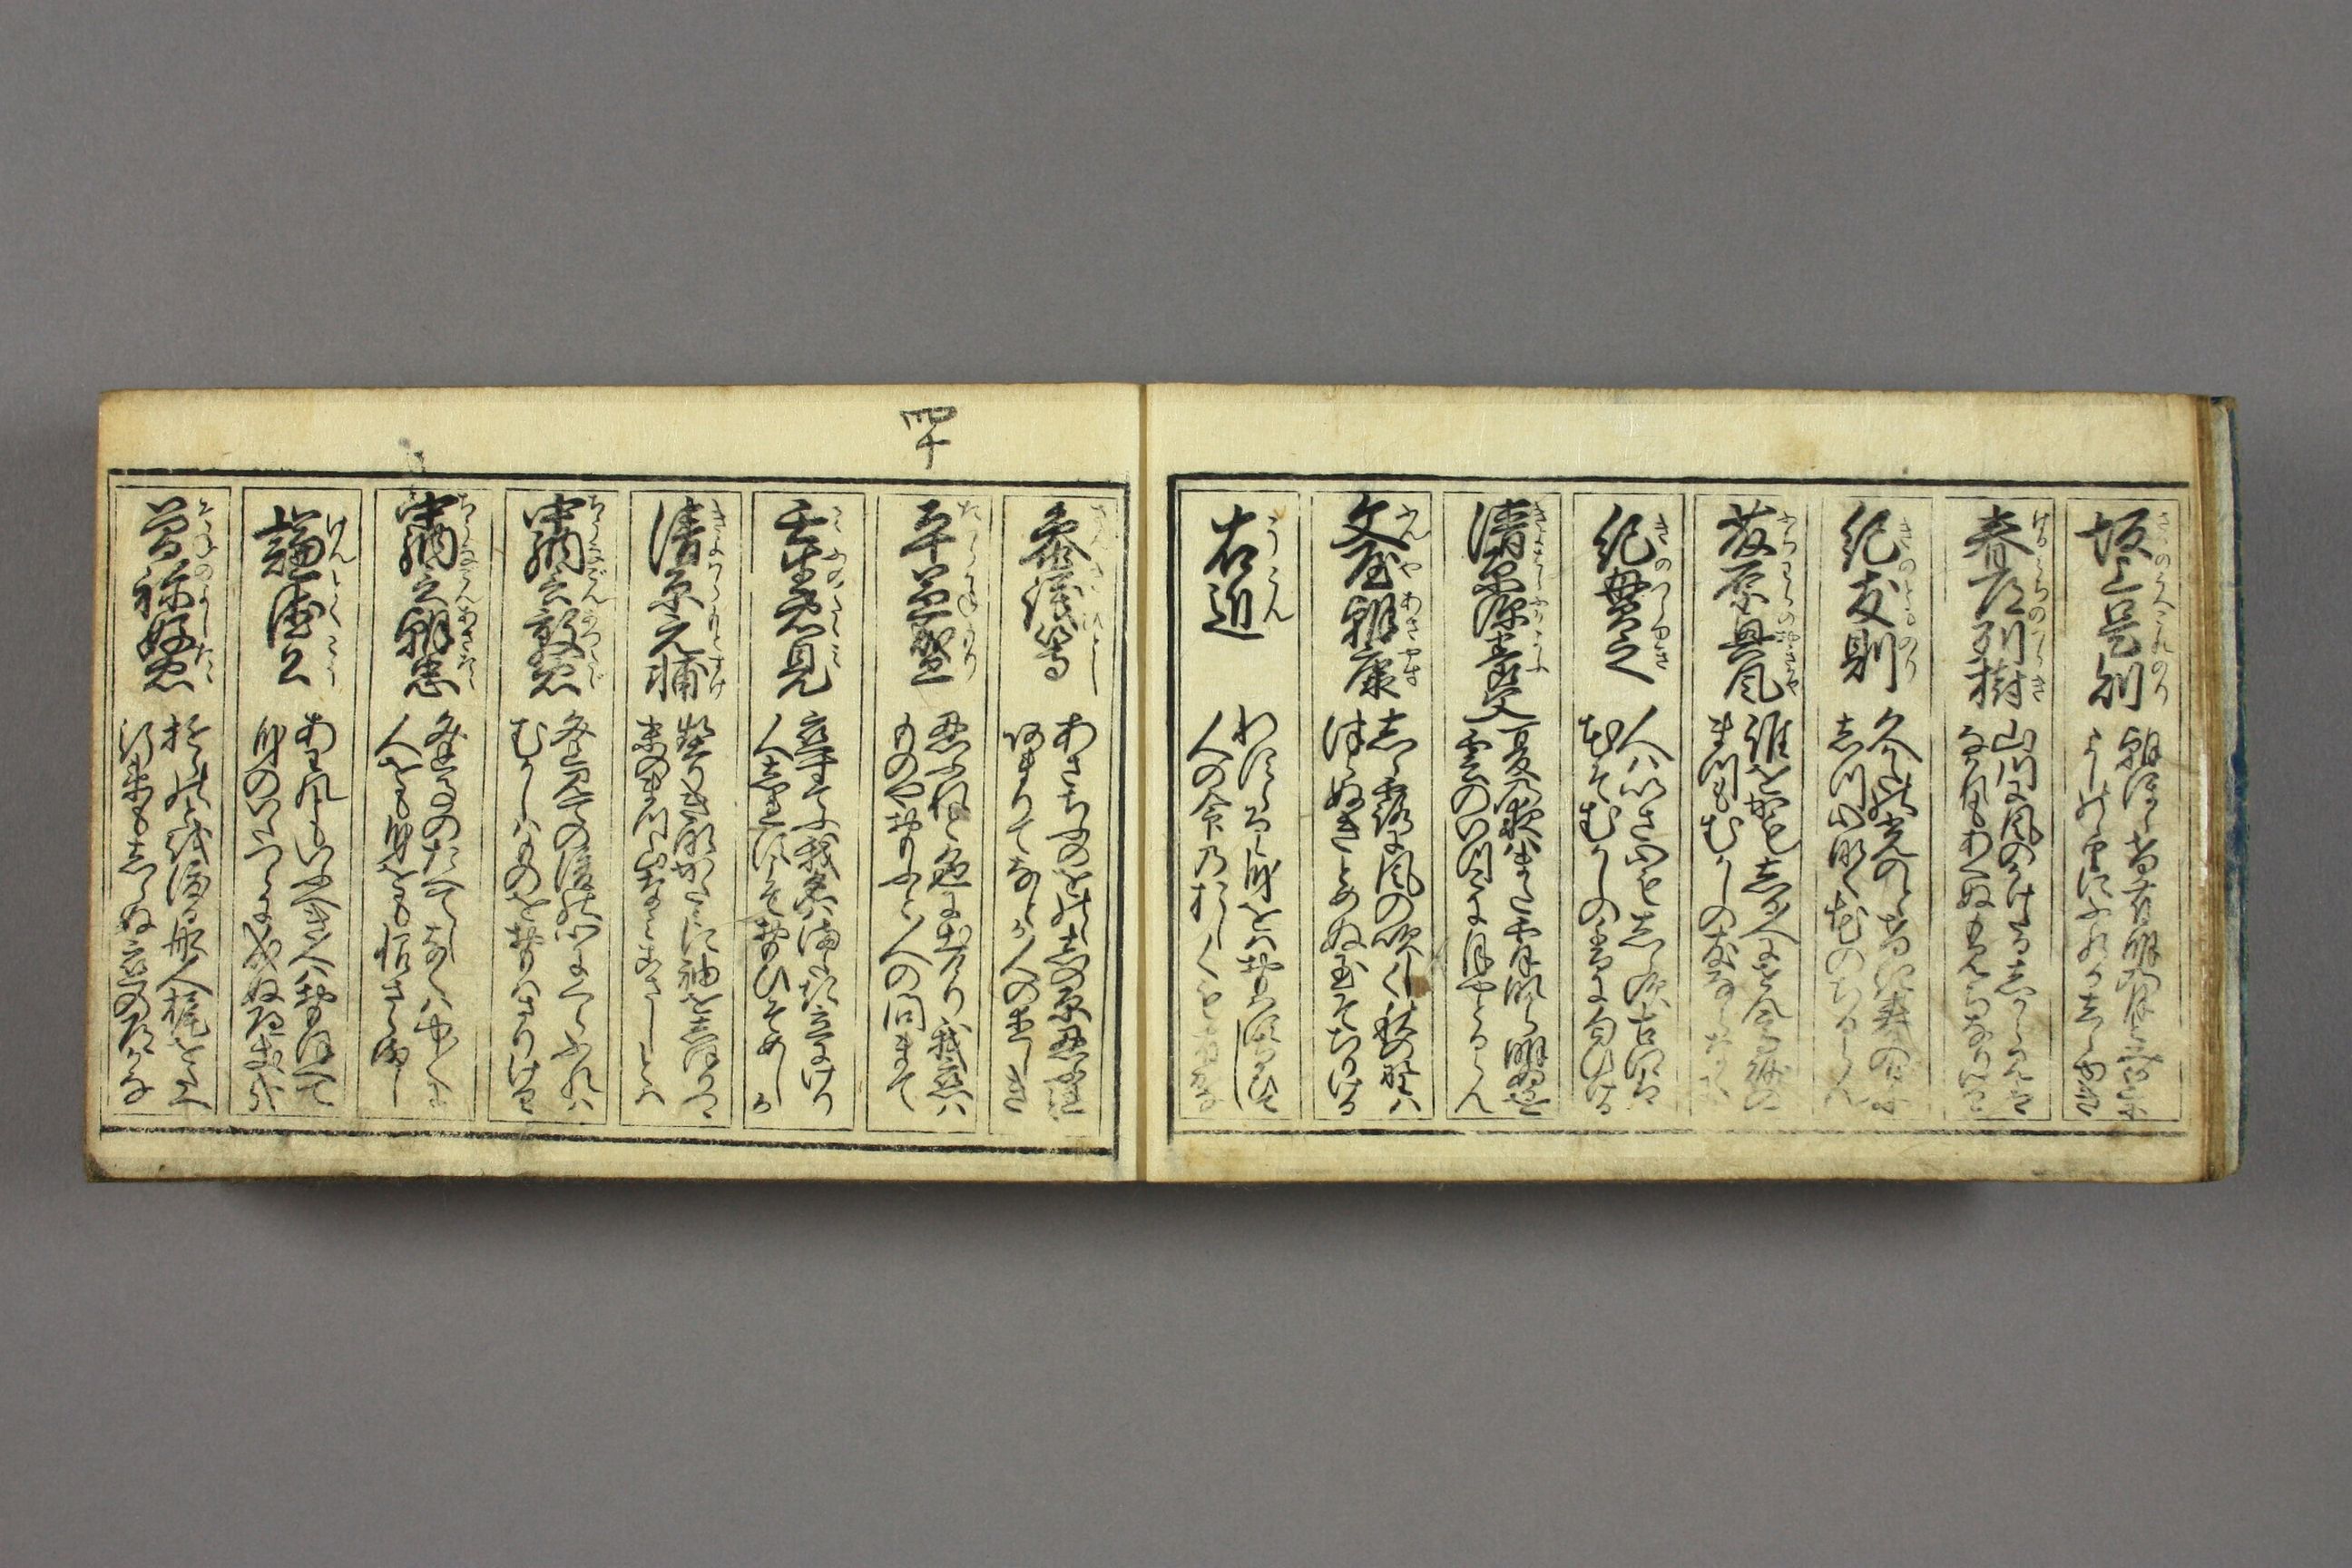 坂上是則
さかのうへこれのり
朝ほらけ有明の月とみるまてに
よしのゝ里にふれるしら雪
春道列樹
はるみちのつらき
山川に風のかけたるしからみは
なかれもあへぬもみちなりけり
紀友則
きのとものり
久かたの光のとけき春の日に
志つ心なく花のちるらん
藤原興風
ふちわらのおきかせ
誰をかも志る人にせん高砂の
まつもむかしの友ならなくに
紀貫之
きのつらゆき
人はいさ心も志らす古郷は
花そむかしの香に匂ひける
清原深養父
きよはらふかやふ
夏の夜はまた宵なから明ぬるを
雲のいつこに月やとるらん
文屋朝康
ふんやあさやす
志ら露に風の吹しく秋の野は
つらぬきとめぬ玉そちりける
右近
うこん
わすらるゝ身をは思はすちかひてし
人の命のおしくもあるかな
四十
参議等
さんきひとし
あさちふのをのゝ志の原忍ふれと
あまりてなとか人の恋しき
平兼盛
たいらのかねもり
忍ふれと色に出にけり我恋は
ものや思ふと人の問まて
壬生忠見
みふのたゝみ
恋すてふ我名はまたき立にけり
人志れすこそ思ひそめしか
清原元輔
きよはらのもとすけ
契りきなかたみに袖を志ほりつゝ
末の松山浪こさしとは
中納言敦忠
ちうなこんあつたゝ
あひ見ての後の心にくらふれは
むかしはものを思はさりけり
中納言朝忠
ちうなこんあさたゝ
あふ事のたえてしなくは中〳〵に
人をも身をも恨さらまし
謙徳公
けんとくこう
あはれともいふへき人は思ほえて
身のいたつらに成ぬへきかな
曽祢好忠
そねのよしたゝ
由良のとを渡る舟人梶をたえ
行衛も志らぬ恋の道かな